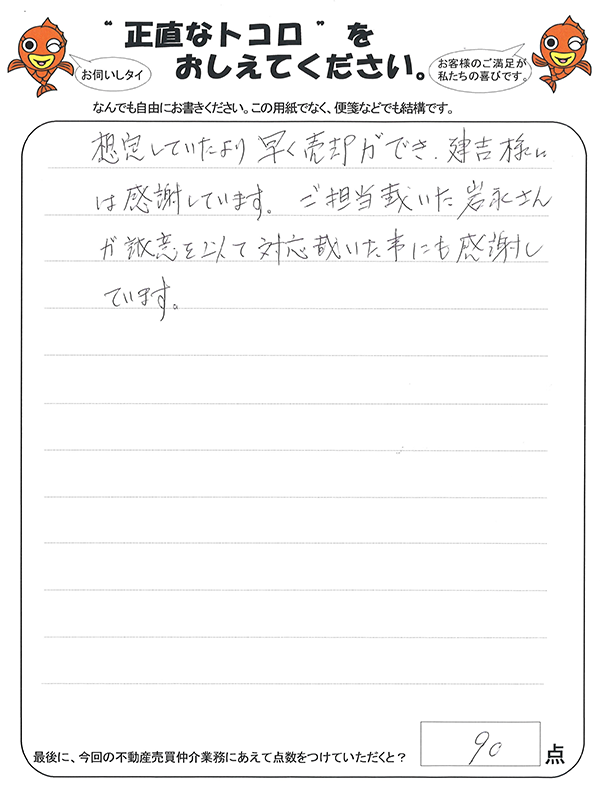 “正直なトコロ”を
おしえてください。
お伺いしタイ
お客様のご満足が
私たちの喜びです。
なんでも自由にお書きください。この用紙でなく、便箋などでも結構です。
想定していたより早く売却ができ、建吉様に
は感謝しています。ご担当戴いた岩永さん
が誠意を以て対応戴いた事にも感謝し
ています。
最後に、今回の不動産売買仲介業務にあえて点数をつけていただくと？
90
点